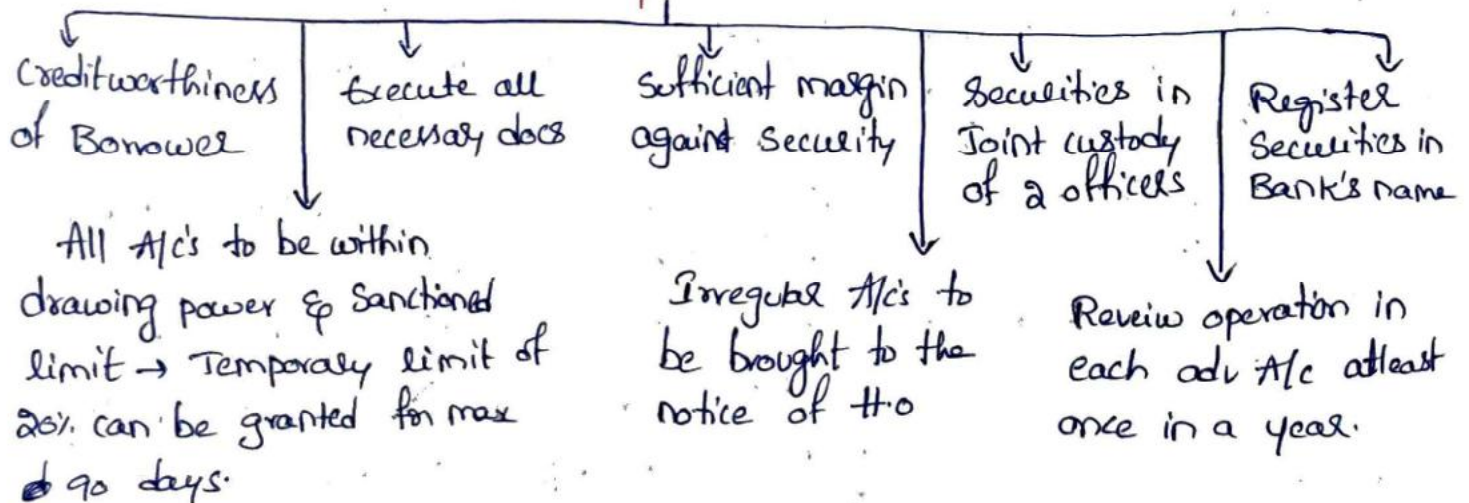 Creditworthiness
of Borrower
Execute all
necessary docs
Sufficient margin
against Security
Securities in
Joint custody
of 2 officers
Register
Securities in
Bank's name
All A/c's to be within
drawing power & Sanctioned
limit → Temporary limit of
20% can be granted for max
90 days.
Irregular A/c's to
be brought to the
notice of H.O
Reveiw operation in
each adv A/c atleast
once in a year.